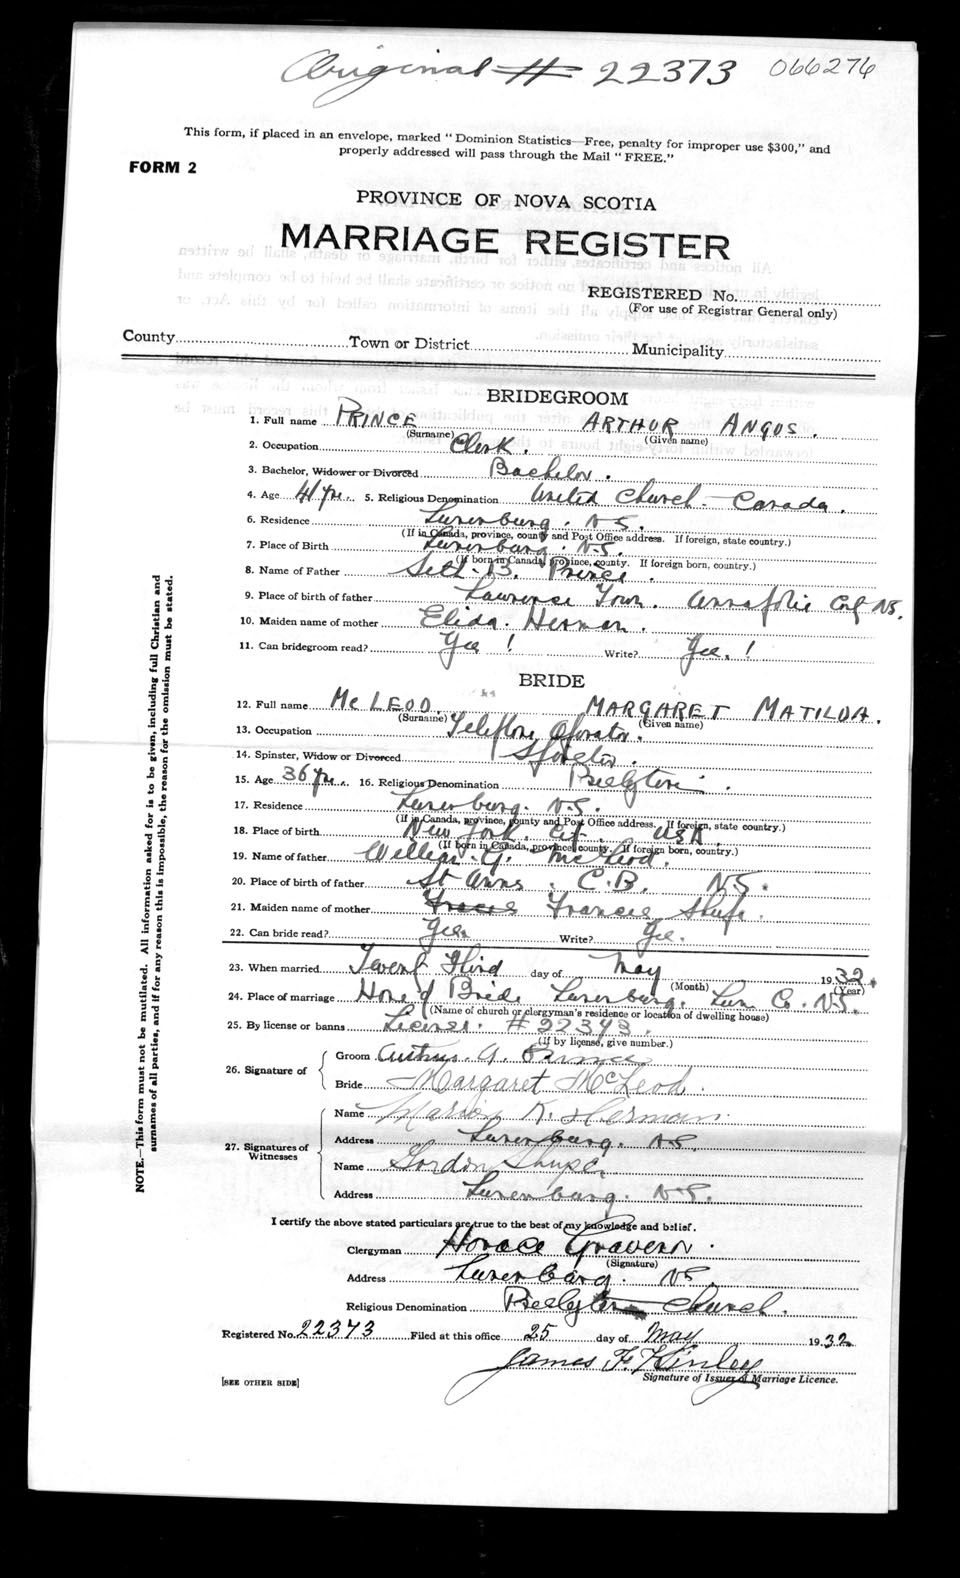 Original # 22373 066276
This form, if placed in an envelope, marked "Dominion Statistics—Free, penalty for improper use $300," and
properly addressed will pass through the Mail "FREE."
FORM 2
PROVINCE OF NOVA SCOTIA
MARRIAGE REGISTER
REGISTERED No.
(For use of Registrar General only)
County Town or District Municipality
BRIDEGROOM
1. Full name PRINCE ARTHUR ANGUS.
(Surname) (Given name)
2. Occupation Clerk.
3. Bachelor, Widower or Divorced Bachelor.
4. Age 41 yrs. 5. Religious Denomination United Church - Canada.
6. Residence Lunenburg. N.S.
(If in Canada, province, county and Post Office address. If foreign, state country.)
7. Place of Birth Lunenburg. N.S.
(If born in Canada, province, county. If foreign born, country.)
8. Name of Father Seth. B. Prince.
9. Place of birth of father Lawrence Town. Annapolis Co. N.S.
10. Maiden name of mother Elida. Herman.
11. Can bridegroom read? Yes! Write? Yes.!
BRIDE
12. Full name McLEOD. MARGARET MATILDA.
(Surname) (Given name)
13. Occupation Telephone Operator.
14. Spinster, Widow or Divorced Spinster.
15. Age 36 yrs. 16. Religious Denomination Presbyterian.
17. Residence Lunenburg. N.S.
(If in Canada, province, county and Post Office address. If foreign, state country.)
18. Place of birth New York. City. USA.
(If born in Canada, province, county. If foreign born, country.)
19. Name of father William. G. McLeod.
20. Place of birth of father St Anns. C.B. N.S.
21. Maiden name of mother Frances Shupe.
22. Can bride read? Yes. Write? Yes.
23. When married Twenty Third day of May 1932.
(Month) (Year)
24. Place of marriage Home of Bride Lunenburg. Lun Co. N.S.
(Name of church or clergyman's residence or location of dwelling house)
25. By license or banns License. # 22373.
(If by license, give number.)
26. Signature of
Groom Arthur A. Prince
Bride Margaret McLeod.
27. Signatures of Witnesses
Name Marion K. Herman.
Address Lunenburg. N.S.
Name Gordon Shupe.
Address Lunenburg. N.S.
I certify the above stated particulars are true to the best of my knowledge and belief.
Clergyman Horace Gravern.
(Signature)
Address Lunenburg. N.S.
Religious Denomination Presbyterian Church.
Registered No. 22373 Filed at this office 25 day of May 1932
James F. Kinley
Signature of Issuer of Marriage Licence.
[SEE OTHER SIDE]
NOTE.—This form must not be mutilated. All information asked for is to be given, including full Christian and
surnames of all parties, and if for any reason this is impossible, the reason for the omission must be stated.